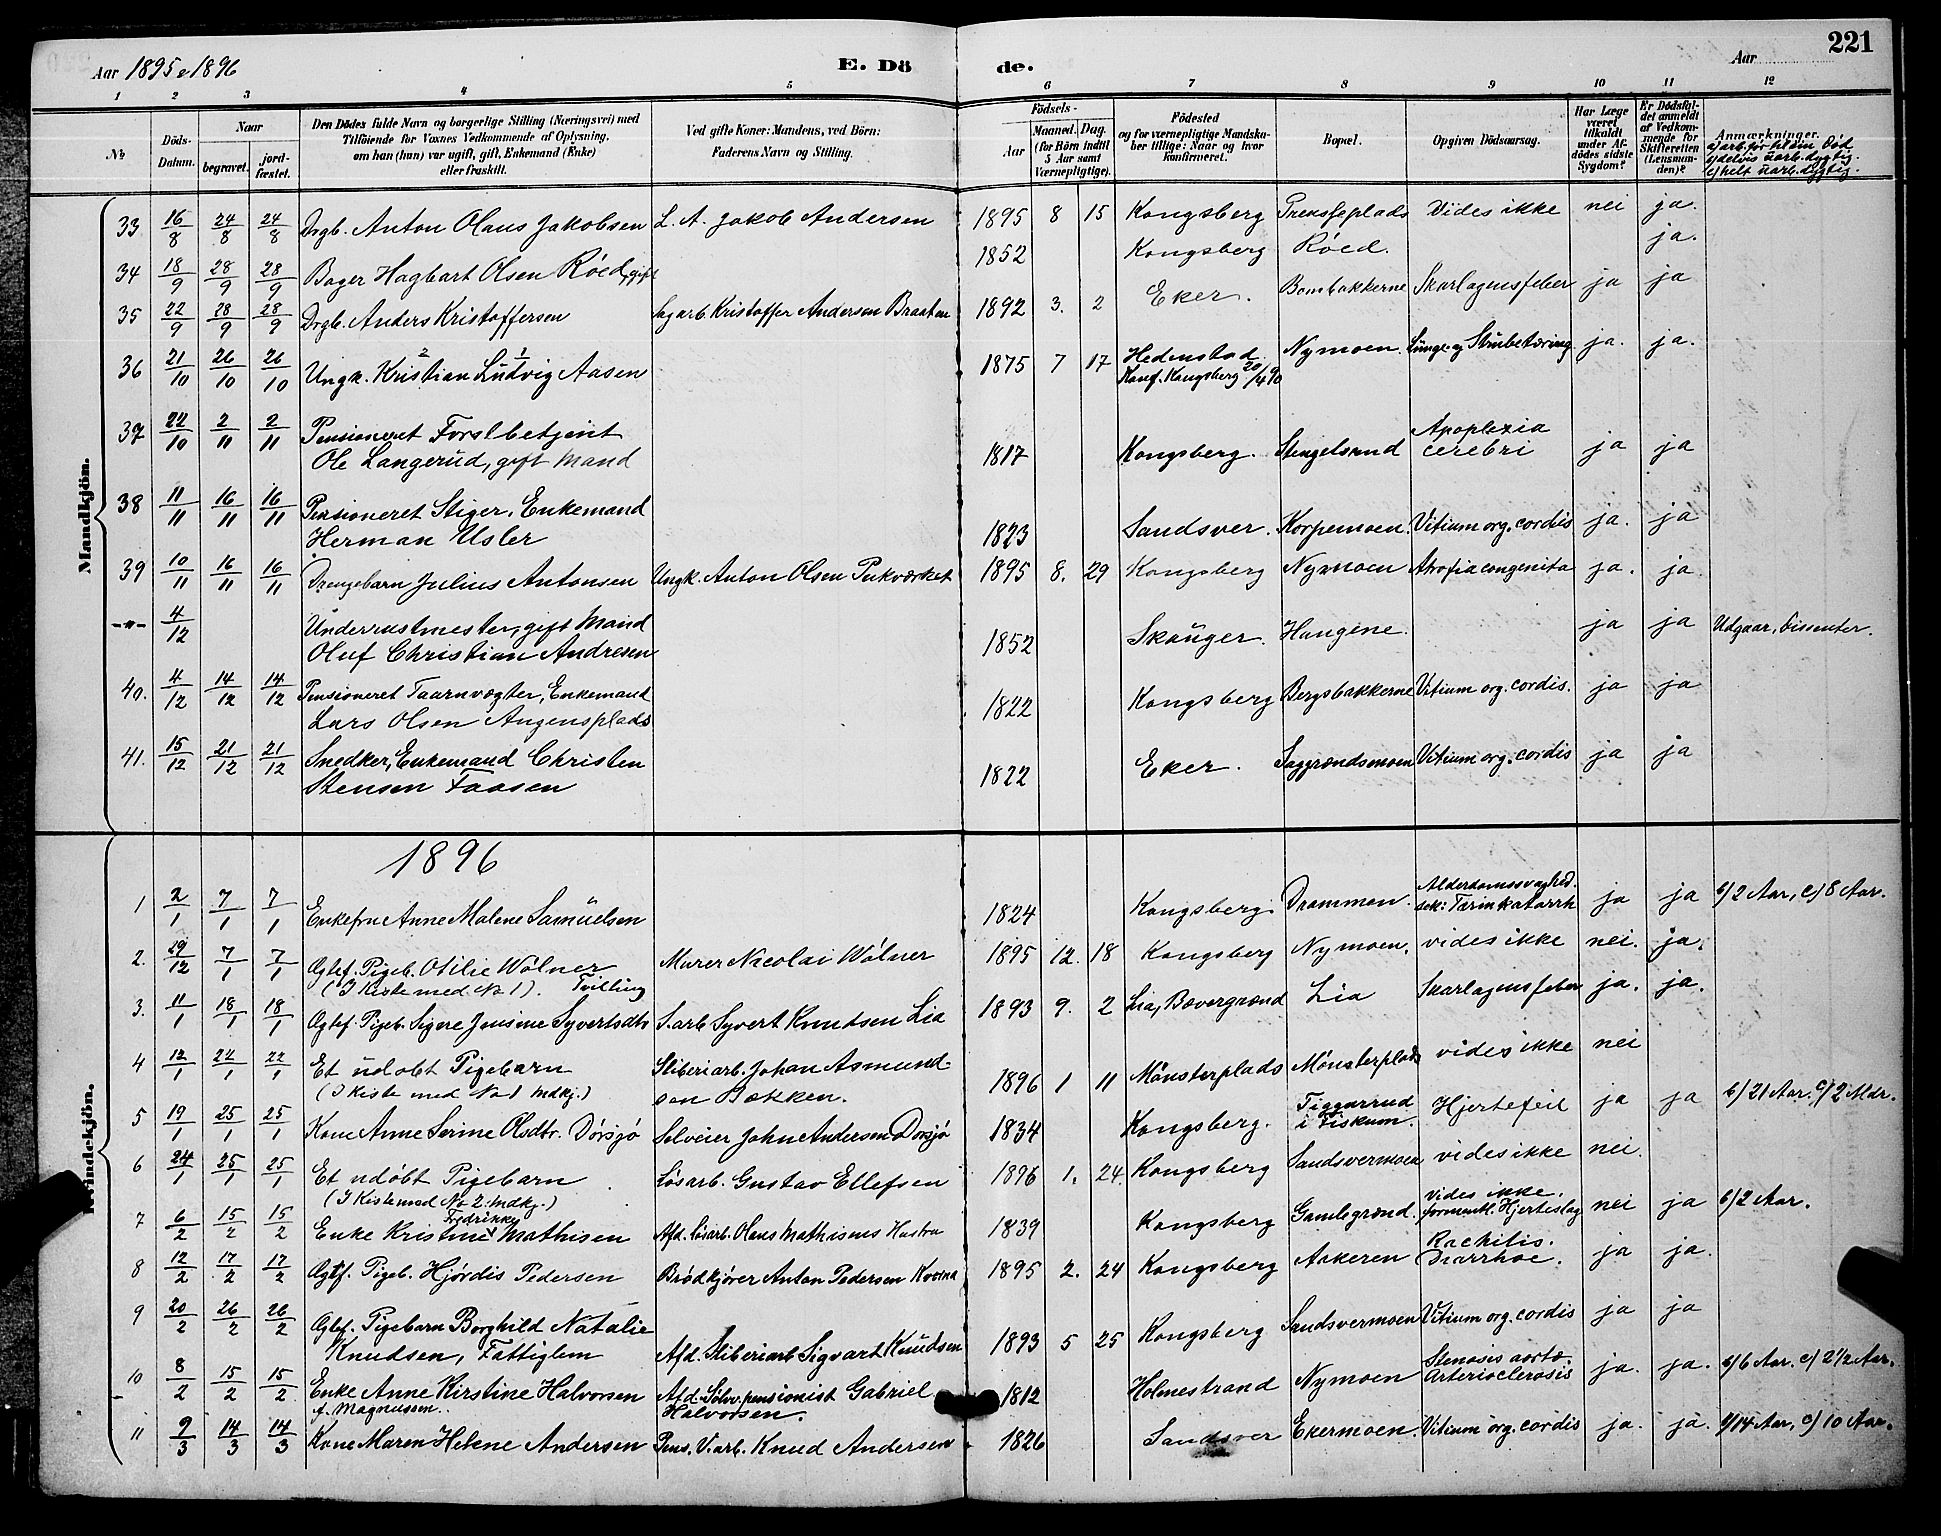 221
Aar 1895 & 1896
E. Dö de.
Aar
1 2 3 4 5 6 7 8 9 10 11 12
No
Döds-Datum.
Naar
begravet. jord-fæstet.
Den Dödes fulde Navn og borgerlige Stilling (Næringsvei) med
Tilföiende for Voxnes Vedkommende af Oplysning,
om han (hun) var ugift, gift, Enkemand (Enke)
eller fraskilt.
Ved gifte Koner: Mandens, ved Börn:
Faderens Navn og Stilling.
Födsels-
Aar
Maaned. Dag.
(for Börn indtil
5 Aar samt
Værnepligtige).
Födested
og for værnepligtige Mandska-
ber tillige: Naar og hvor
konfirmeret.
Bopæl.
Opgiven Dödsaarsag.
Har Læge
været
tilkaldt
under Af-
dödes sidste
Sygdom?
Er Dödsfal-
det anmeldt
af Vedkom-
mende for
Skifteretten
(Lensman-
den)?
Anmærkninger.
Mandkjön.
33 16/8 24/8 24/8 Drgb. Anton Olaus Jakobsen L. A. Jakob Andersen 1895 8 15 Kongsberg Vides ikke nei ja.
34 18/9 28/9 28/9 Bager Hagbart Olsen Röed, gift 1852 Kongsberg Röed. ja.
35 22/9 28/9 28/9 Drgb. Anders Kristoffersen Sagarb Kristoffer Andersen Braaten 1892 3. 2 Eker. Bombakkerne Skarlagensfeber ja ja
36 21/10 26/10 26/10 Ungk. Kristian Ludvig Aasen 1875 7 17 Hedenstad Nymoen. Lunge og Strubetæring ja. ja.
Konf. Kongsberg 20/4 90
37 22/10 2/11 2/11 Pensioneret Forstbetjent
Ole Langerud, gift Mand 1817 Kongsberg. Stengelsrud Apoplexia
cerebri ja ja
38 11/11 16/11 16/11 Pensioneret Stiger, Enkemand
Herman Usler 1823 Sandsver. Korpemoen. Vitium org. cordis ja. ja
39 10/11 16/11 16/11 Drengebarn Julius Antonsen Ungk. Anton Olsen Pukværket 1895 8. 29 Kongsberg Nymoen Atrofia congenita ja. ja.
-"- 4/12 Underrustmester, gift Mand
Oluf Christian Andresen 1852 Skauger. Haugene. ja ja Udgaar, Dissenter.
40. 4/12 14/12 14/12 Pensioneret Taarnvægter, Enkemand
Lars Olsen Angensplads 1822 Kongsberg Bergsbakkerne Vitium org. cordis. ja ja
41. 15/12 21/12 21/12 Snedker, Enkemand Christen
Stensen Faasen 1822 Eker. Saggrændsmoen Vitium org. cordis ja ja
Kvindekjön.
1896
1 2/1 7/1 7/1 Enkefru Anne Malene Samuelsen 1824 Kongsberg. Drammen. Alderdomssvaghed.
sek: Tarmkatarrh ja ja b/2 Aar, c/8 Aar.
2. 29/12 7/1 7/1 Ogtef. Pigeb. Otilie Wölner Murer Nicolai Wölner 1895 12. 18 Kongsberg Nymoen. vides ikke nei. ja.
(I Kiste med No 1). Tvilling
3. 11/1 18/1 18/1 Ogtef. Pigeb. Sigere Jensine Syvertsdtr S. arb Syvert Knudsen Lia 1893 9. 2 Lia, Bævergrænd Lia Skarlagensfeber ja. ja.
4 12/1 22/1 22/1 Et udobt Pigebarn Stiberiarb. Johan Asmund-
(I Kiste med No 1 Mdkj.) sen Bækken. 1896 1 11 Mönsterplads Mönsterplads vides ikke nei
5 19/1 25/1 25/1 Kone Anne Serine Olsdtr. Dörsjö Sölveier John Andersen Dorsjö 1834 Kongsberg. Tiggarrud
i Fiskum. Hjertefeil ja ja b/21 Aar. c/2 Mdr.
6 24/1 25/1 25/1 Et udöbt Pigebarn Lösarb. Gustav Ellefsen 1896 1. 24. Kongsberg Sandsvermoen vides ikke nei.
(I Kiste med No 2. Mdkj.)
7 6/2 15/2 15/2 Enke Kristine Fredrikke Mathisen Afd. lösarb. Olaus Mathisens Hustru 1839 Kongsberg Gamlegrend. vides ikke.
formentl. Hjerteslag nei ja b/2 Aar.
8 12/2 17/2 17/2 Ogtf. Pigeb. Hjördis Pedersen Brödkjörer Anton Pedersen 1895 2. 24 Kongsberg Aakeren Rachitis.
Diarrhoe. ja ja.
9 20/2 26/2 26/2 Ogtef. Pigebarn Borghild Natalie
Knudsen, Fattiglem Afd. Stiberiarb Sigvart Knudsen 1893 5 25 Kongsberg Sandsvermoen Vitium org. cordis ja ja
10 8/2 15/2 15/2 Enke Anne Kirstine Halvorsen
f. Magnussen. Afd. Sölvv. pensionist Gabriel
Halvorsen. 1812 Holmestrand Nymoen Stenosis aortæ.
Arterioclerosis ja. ja. b/6 Aar, c/2 1/2 Aar.
11 9/3 14/3 14/3 Kone Maren Helene Andersen Pens. V. arb. Knud Andersen 1826 Sandsver Ekermoen. Vitium org. cordis ja. ja. b/14 Aar, c/10 Aar.